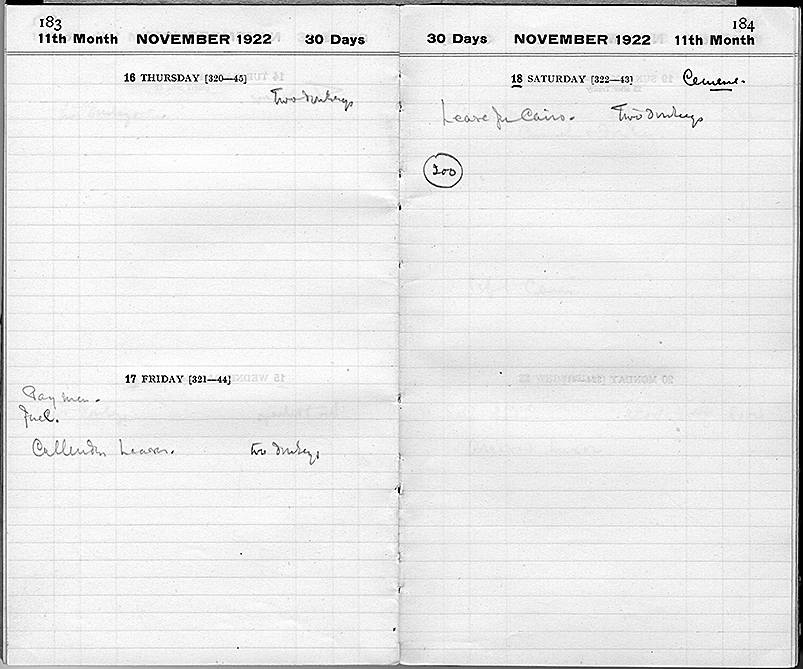 183
11th Month NOVEMBER 1922 30 Days
16 THURSDAY [320—45]
Two donkeys
17 FRIDAY [321—44]
Pay men.
Fuel.
Callender leaves. two donkeys
184
30 Days NOVEMBER 1922 11th Month
18 SATURDAY [322—43] Cement.
Leave for Cairo. Two donkeys
200